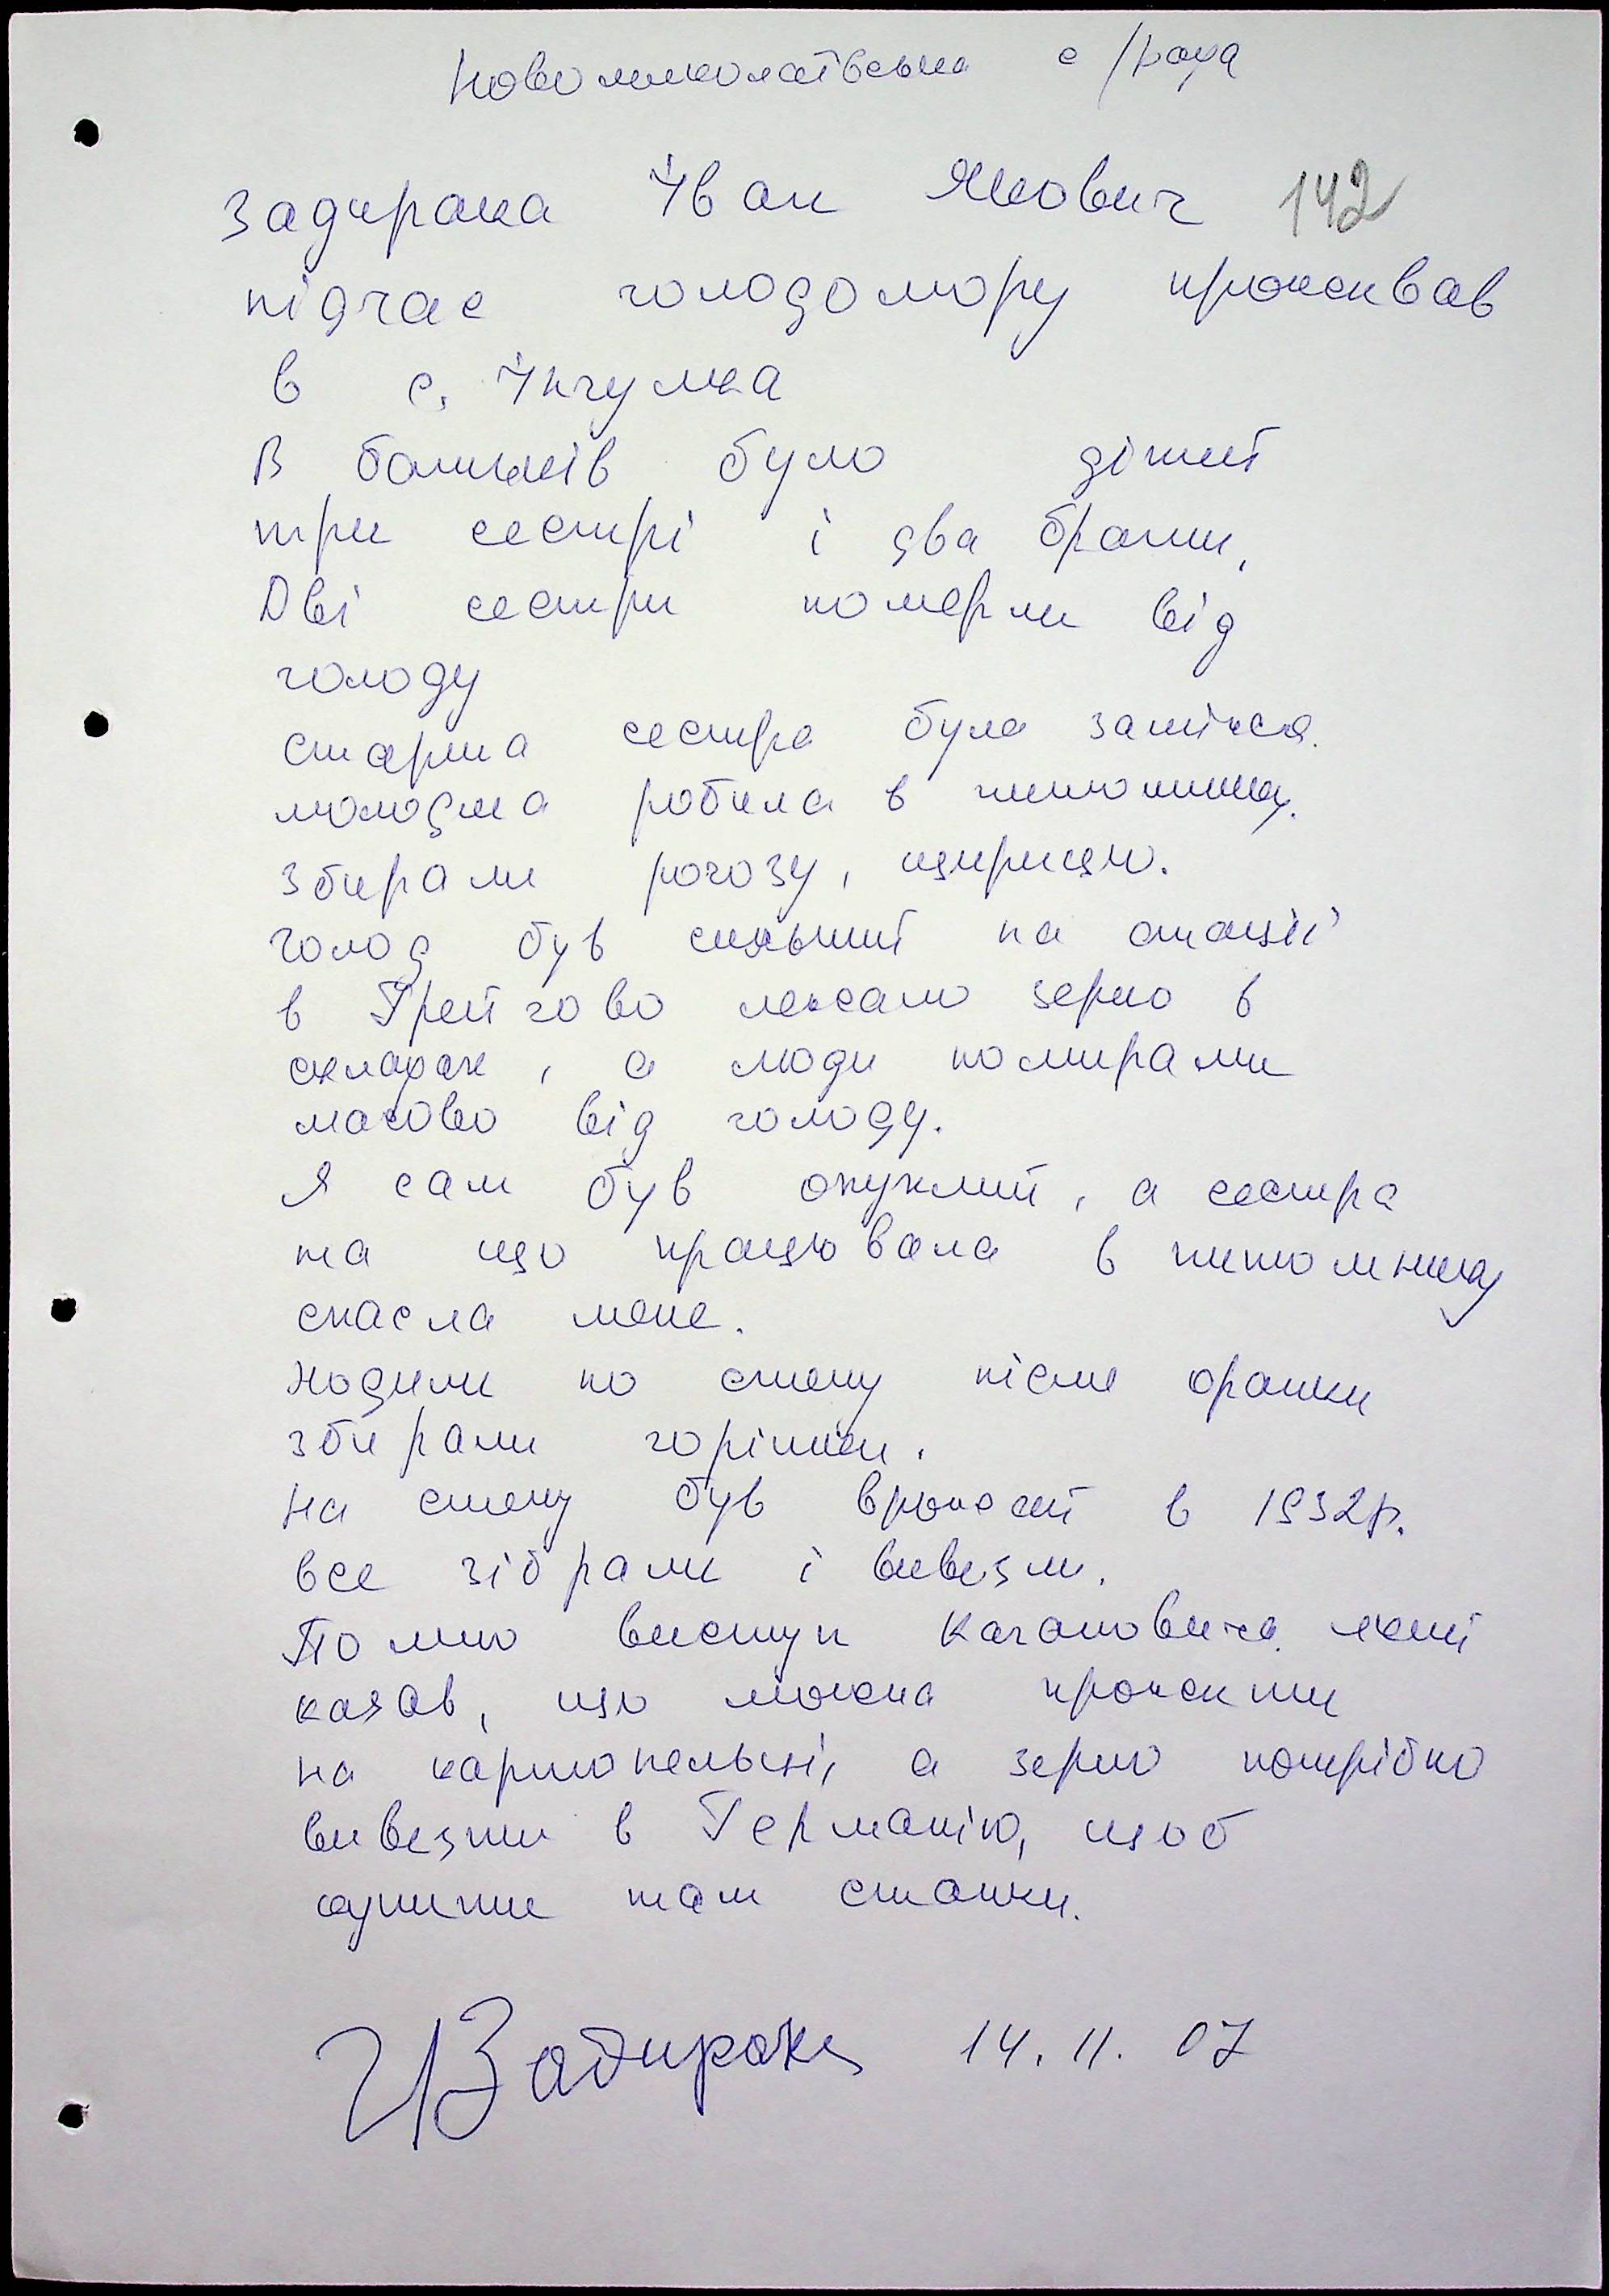 Новомиколаївська с/рада
Задирака Іван Якович 142
підчас голодомору проживав
в с. Інгулка
В батьків було дітей
три сестрі і два брати,
Дві сестри померли від
голоду
старша сестра була заміжся.
молодша робила в питомнику.
збирали рогозу, щирицю.
Голод був сильний на станції
в Грейгово лежало зерно в
складах, а люди помирали
масово від голоду.
Я сам був опухлий, а сестра
та що працювала в питомнику
спасла мене.
Ходили по степу після оранки
збирали горішки.
На степу був врожай в 1932р.
все зібрали і вивезли.
Помню виступ Кагановича який
казав, що можна прожити
на картопельні, а зерно потрібно
вивезти в Германію, щоб
купити там станки.
ИЗадирака 14.11.07